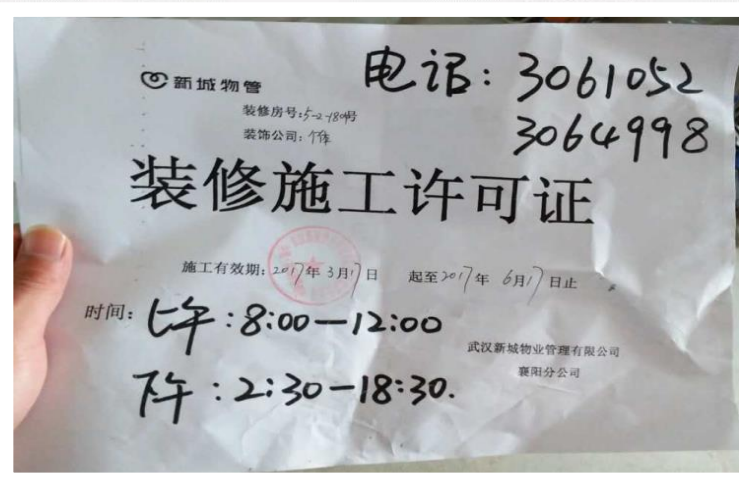 新城物管
电话: 3061052
3064998
装修房号:5-2-1804号
装饰公司:个体
装修施工许可证
施工有效期:2017年3月17日 起至2017年6月17日止
时间:上午:8:00—12:00
下午:2:30—18:30.
武汉新城物业管理有限公司
襄阳分公司